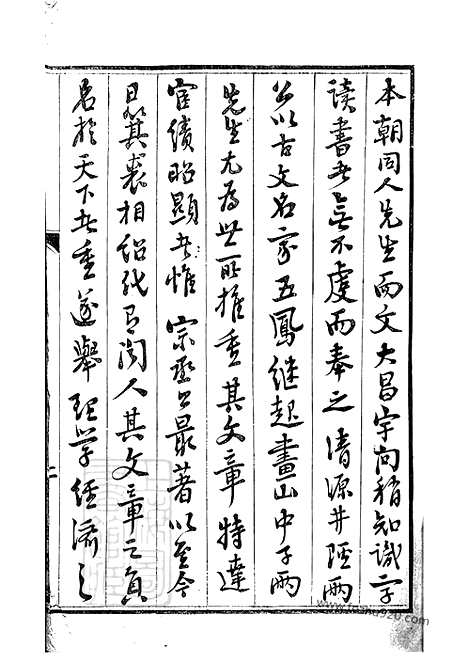 本朝同人先生而文大昌宇向稍知識字
讀書者無不虔而奉之清源井陘兩
公以古文名家五鳳继起畫山中子兩
先生尤為世所推重其文章特達
宦績昭顯者惟 宗丞公最著以至今
日箕裘相紹代有聞人其文章之負
名於天下者重遂舉理学經濟之
二
www.fushu920.com